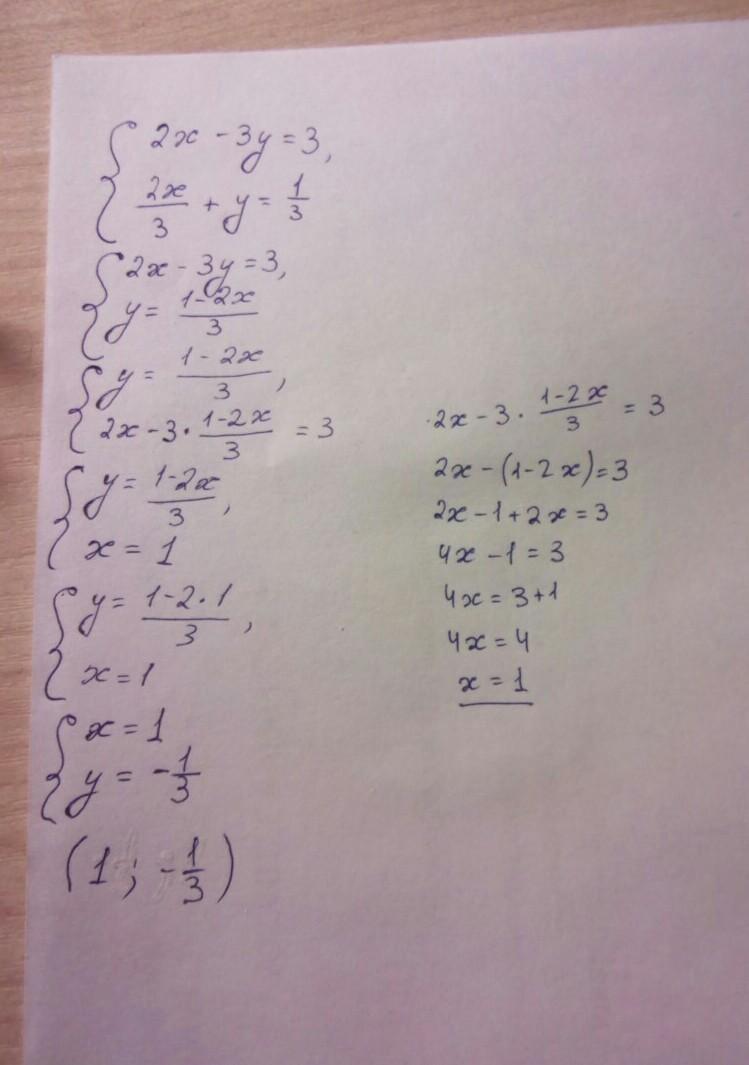 { 2x - 3y = 3,
2x/3 + y = 1/3
{ 2x - 3y = 3,
y = (1-2x)/3
{ y = (1-2x)/3,
2x - 3 · (1-2x)/3 = 3
{ y = (1-2x)/3,
x = 1
{ y = (1-2·1)/3,
x = 1
{ x = 1
y = -1/3
(1; -1/3)
2x - 3 · (1-2x)/3 = 3
2x - (1-2x) = 3
2x - 1 + 2x = 3
4x - 1 = 3
4x = 3+1
4x = 4
x = 1